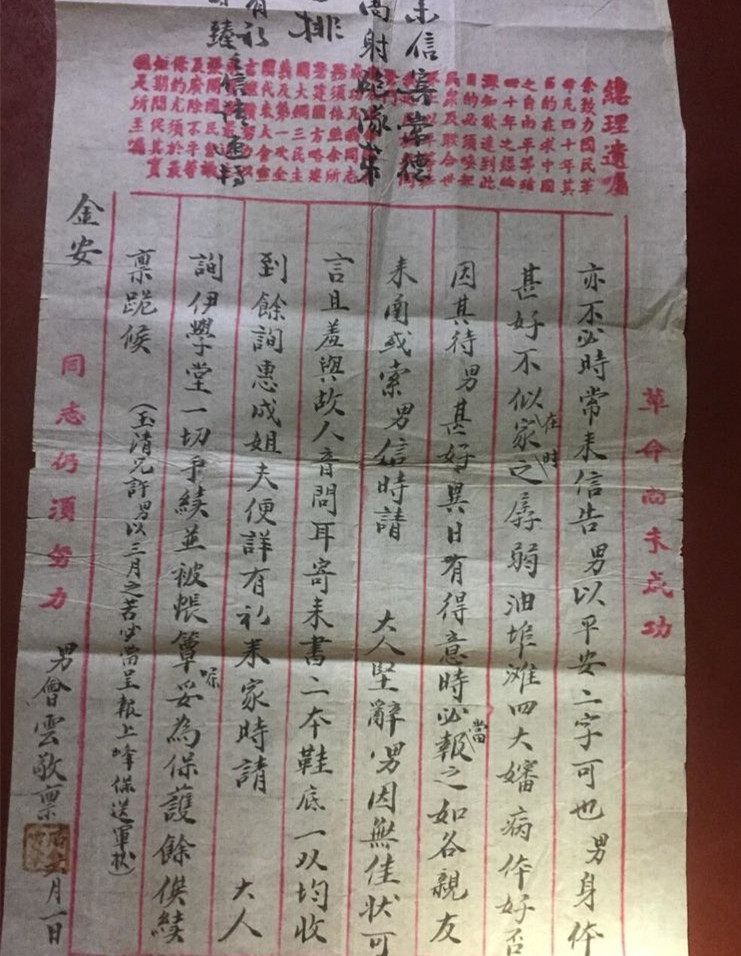 總理遺囑
余致力國民革
命凡四十年其
目的在求中國
之自由平等積
四十年之經驗
深知欲達到此
目的必須喚起
民眾及聯合世
成功凡我同志
務須依照余所
著建國方略建
國大綱三民主
義及第一次全
國代表大會宣
開國民會議
及廢除不平等
條約尤須於最
短期間促其實
現是所至囑
革命尚未成功
亦不必時常來信告男以平安二字可也男身体
甚好不似家在時之孱弱油埠滩四大嬸病体好否
因其待男甚好異日有得意時必當報之如各親友
来函或索男信時請 大人堅辭男因無佳狀可
言且羞與故人音問耳寄来書二本鞋底一双均收
到餘詢惠成姐夫便詳有礼来家時請 大人
詢伊學堂一切手續並被帳簞妥為保護餘俟續
禀跪候
(玉清兄許男以三月之苦必當呈報上峰保送軍校)
金安
同志仍須努力
男會雲敬禀
月一日